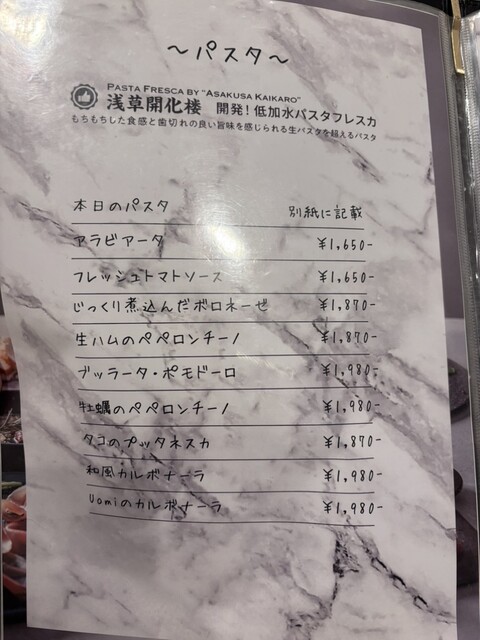 ～パスタ～
PASTA FRESCA BY "ASAKUSA KAIKARO"
浅草開化楼 開発！低加水パスタフレスカ
もちもちした食感と歯切れの良い旨味を感じられる生パスタを超えるパスタ
本日のパスタ 別紙に記載
アラビアータ ¥1,650-
フレッシュトマトソース ¥1,650-
じっくり煮込んだボロネーぜ ¥1,870-
生ハムのペペロンチーノ ¥1,870-
ブッラータ・ポモドーロ ¥1,980-
牡蠣のペペロンチーノ ¥1,980-
タコのプッタネスカ ¥1,870-
和風カルボナーラ ¥1,980-
Uomiのカルボナーラ ¥1,980-